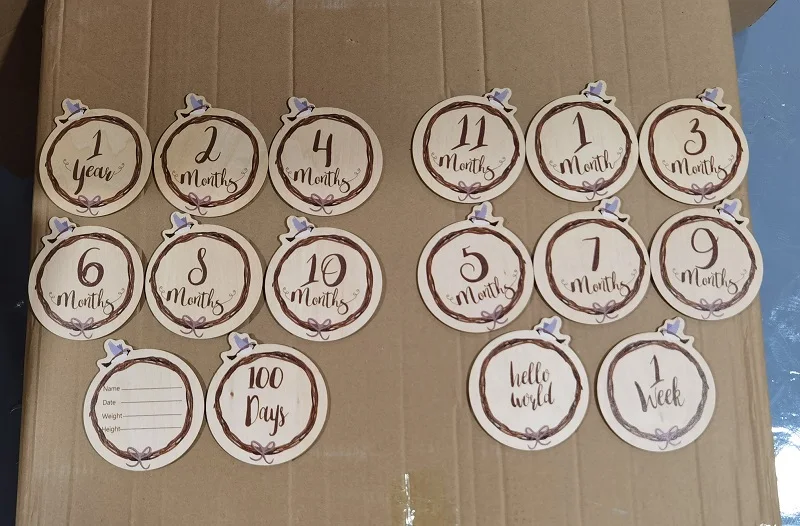 1
Year
2
Months
4
Months
11
Months
1
Month
3
Months
6
Months
8
Months
10
Months
5
Months
7
Months
9
Months
Name
Date
Weight
Height
100
Days
hello
world
1
Week